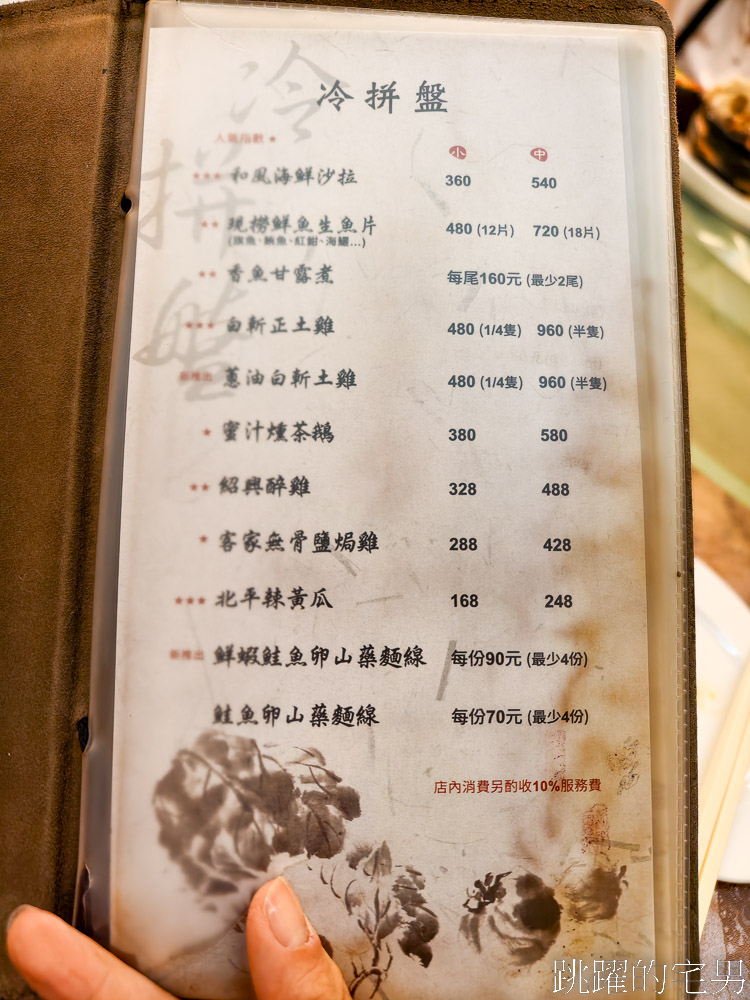 冷拼盤
冷拼盤
人氣指數 ★
小 中
★★★ 和風海鮮沙拉 360 540
★★ 現撈鮮魚生魚片 480 (12片) 720 (18片)
(旗魚、鮪魚、紅魽、海鱺...)
★★ 香魚甘露煮 每尾160元 (最少2尾)
★★★ 白斬正土雞 480 (1/4隻) 960 (半隻)
新推出 蔥油白斬土雞 480 (1/4隻) 960 (半隻)
★ 蜜汁燻茶鵝 380 580
★★ 紹興醉雞 328 488
★ 客家無骨鹽焗雞 288 428
★★★ 北平辣黃瓜 168 248
新推出 鮮蝦鮭魚卵山藥麵線 每份90元 (最少4份)
鮭魚卵山藥麵線 每份70元 (最少4份)
店內消費另酌收10%服務費
跳躍的宅男